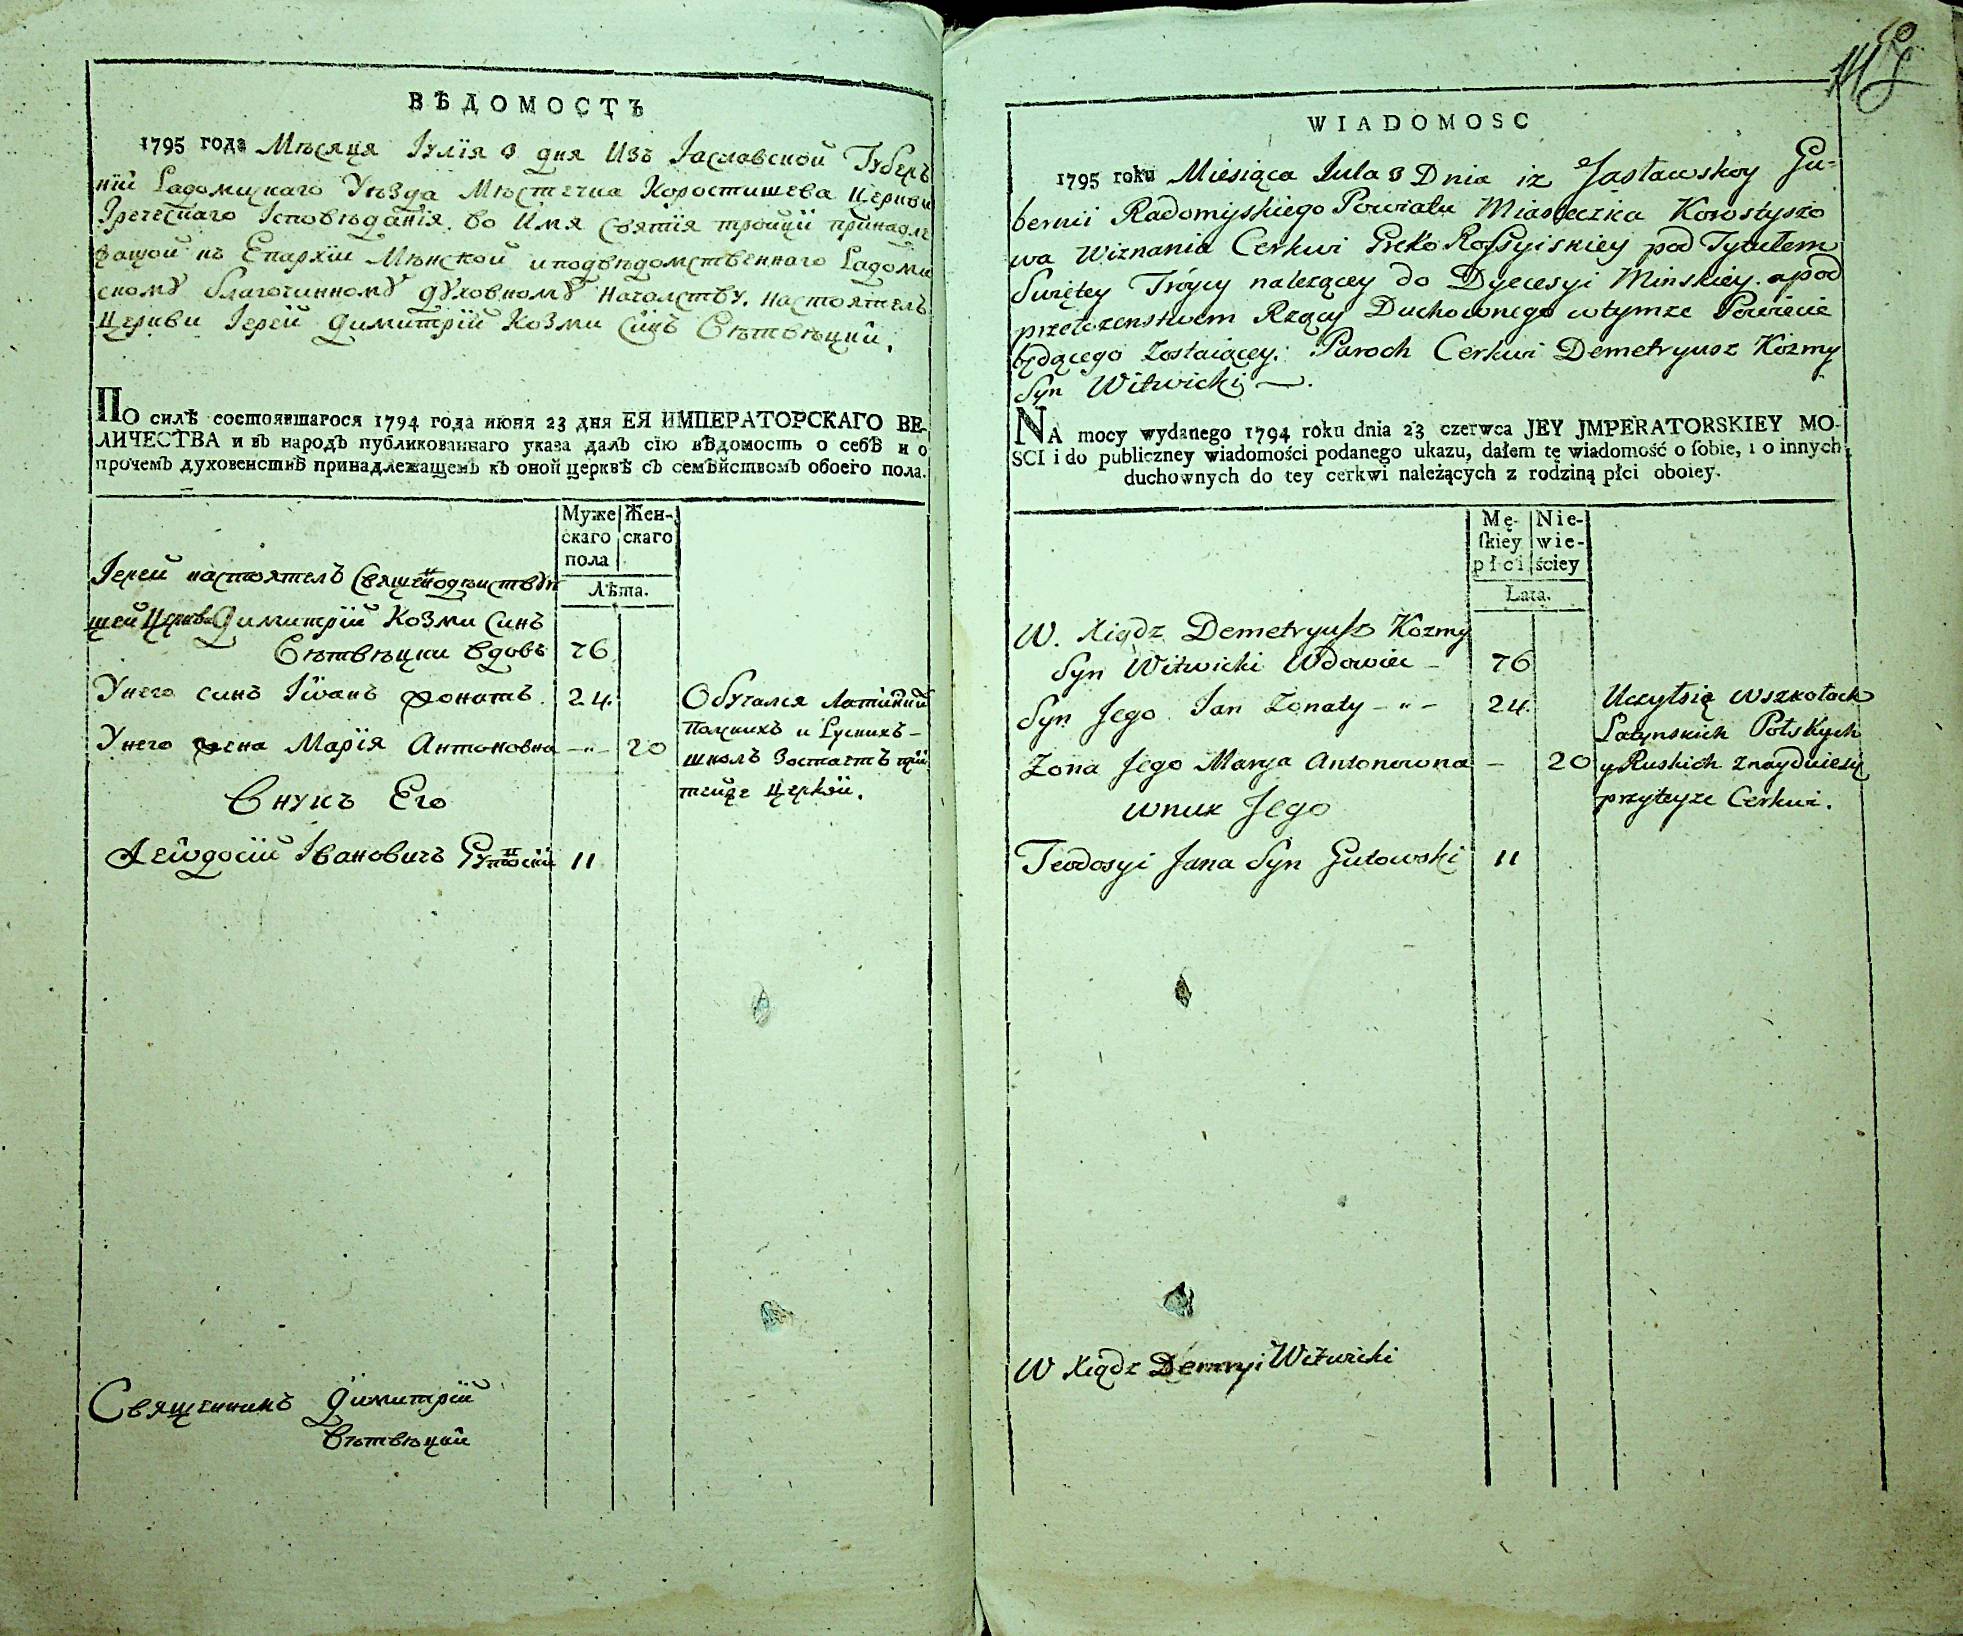 ВѢДОМОСТЬ
1795 года Мѣсяця Іулїя 3 дня Изъ Іаславской Губерь
нїй Радомицкаго Уѣзда Мѣстечка Коростишева Церкви
Гречесчаго Ісповѣданїя. во Имя Святїя тройцй принадле
жащой къ Епархїи Мѣнской и подвѣдомственнаго Радоми
скому благочинному духовному началству. настоятель
Церкви Іерей Димитрїй Козми синъ Вѣтвѣцкий.
ПО силѣ состоявшагося 1794 года июня 23 дня ЕЯ ИМПЕРАТОРСКАГО ВЕ-
ЛИЧЕСТВА и въ народъ публикованнаго указа далъ сїю вѣдомость о себѣ и о
прочемъ духовенствѣ принадлежащемъ къ оной церквѣ съ семѣйствомъ обоего пола.
Муже
скаго
пола
Жен-
скаго
Лѣта.
Іерей настоятель Священнодѣиствую
щей Церкви Димитрїй Козми синъ
Вѣтвѣцки вдовъ 76
Унего синъ Іѡанъ жонатъ. 24.
Унего жена Марїя Антоновна —"— 20
Обучался латински
Полскихъ и Рускихъ —
школъ Зостаетъ при
тейже церкви.
Внукъ Его
Феѡдосїй Івановичъ Гутовский 11
Священникъ Димитрїй
Вѣтвѣцкий
WIADOMOSC
1795 roku Miesiąca Jula 3 Dnia iz Jasławskoy Gu-
bernii Radomyskiego Powiatu Miasteczka Korostyszo
wa Wiznania Cerkwi Greko Rossyiskiey pod Tytułem
Swiętey Tróycy nalezącey do Dyecesyi Minskiey. apod
przełozenstwem Rządcy Duchownego wtymze Powiecie
będącego zostaiącey. Paroch Cerkwi Demetryusz Kozmy
Syn Witwicki —.
NA mocy wydanego 1794 roku dnia 23 czerwca JEY JMPERATORSKIEY MO-
SCI i do publiczney wiadomości podanego ukazu, dałem tę wiadomość o ſobie, i o innych
duchownych do tey cerkwi należących z rodziną płci oboiey.
Mę-
ſkiey
płci
Nie-
wie-
ściey
Lata.
W. Xiądz Demetryusz Kozmy
Syn Witwicki Wdowiec — 76
Syn Jego Jan Zonaty — " — 24.
Zona Jego Marya Antonowna — 20
Uczyłsię wszkołach
Łacynskich Polskych
y Ruskich znaydziesię
przyteyze Cerkwi.
wnuk Jego
Teodosyi Jana Syn Gutowski 11
W Xiądz Demtryi Witwicki